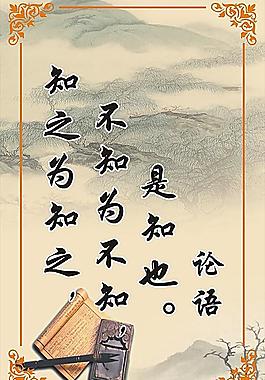 知之为知之
不知为不知
是知也。
论语